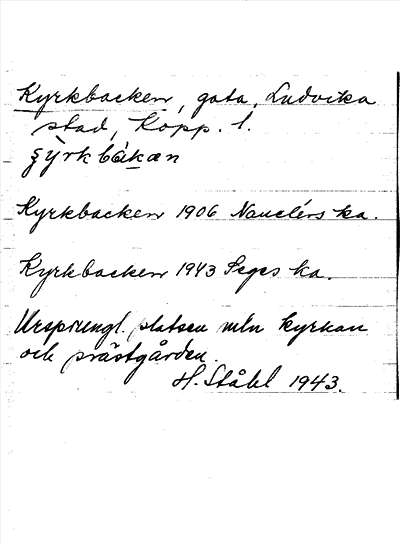 Kyrkbacken, gata, Ludvika
stad, Kopp. l.
Kyrkbacken 1906 Nauclérs ka.
Kyrkbacken 1943 Seges ka.
Ursprungl. platsen mln kyrkan
och prästgården.
H. Ståhl 1943.